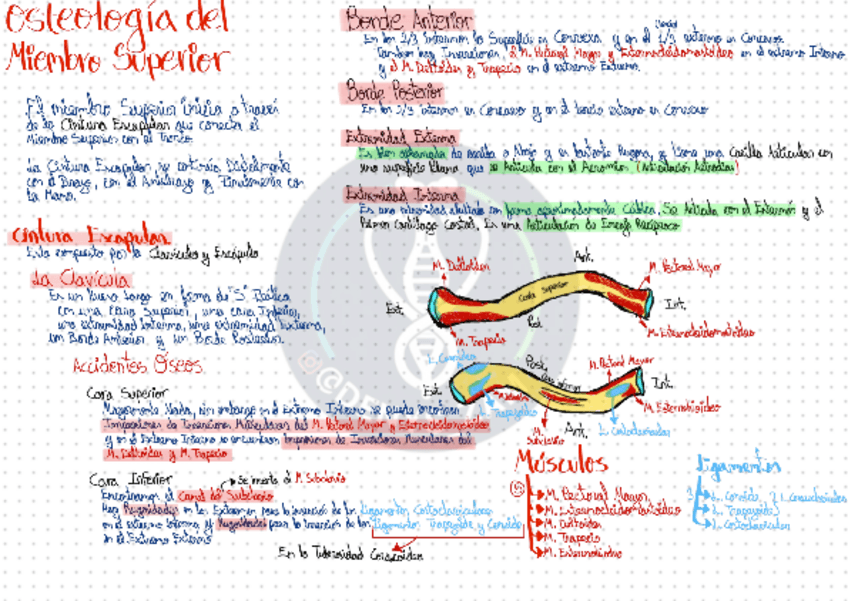 Osteología del
Miembro Superior
El miembro Superior inicia a través
de la Cintura Escapular que conecta el
Miembro Superior con el Tronco.
La Cintura Escapular, se continúa Distalmente
con el Brazo, con el Antebrazo y Finalmente con
la Mano.
Cintura Escapular
Esta compuesto por la Clavícula y Escápula
La Clavícula
Es un Hueso Largo en forma de "S" Itálica
con una Cara Superior, una cara Inferior,
una extremidad Interna, una extremidad Externa,
un Borde Anterior y un Borde Posterior.
Accidentes Óseos
Cara Superior
Mayormente lisa, sin embargo en el Extremo Interno se puede encontrar
Impresiones de Inserciones Musculares del M. Pectoral Mayor y Esternocleidomastoideo
y en el Extremo Externo se encuentran Impresiones de Inserciones Musculares del
M. Deltoides y M. Trapecio
Cara Inferior
Se inserta el M. Subclavio
Encontramos el Canal del Subclavio
Hay Rugosidades en los Extremos para la Inserción de los Ligamentos Costoclaviculares
en el extremo interno y Rugosidades para la Inserción de los Ligamentos Trapezoide y Conoide
en el Extremo Externo
En la Tuberosidad Coracoidea
Borde Anterior
En los 2/3 internos la Superficie es Convexa y en el 1/3 externo es Concavo
También hay Inserciones, el M. Pectoral Mayor y Esternocleidomastoideo en el extremo Interno
y el M. Deltoides y Trapecio en el extremo Externo.
Borde Posterior
En los 2/3 internos es Concavo y en el tercio externo es Convexo
Extremidad Externa
Es bien aplanada de arriba a Abajo y es bastante Rugosa, y tiene una Carilla Articular con
una superficie plana que se Articula con el Acromion (Articulación Artrodia)
Extremidad Interna
Es una extremidad abultada con forma aproximadamente Cúbica. Se Articula con el Esternón y el
Primer Cartílago Costal. Es una Articulación de Encaje Recíproco
Ant.
M. Deltoides
M. Pectoral Mayor
Cara Superior
Ext.
Int.
Pos.
M. Trapecio
M. Esternocleidomastoideo
L. Conoideo
Post.
M. Pectoral Mayor
Cara inferior
Ext.
Int.
L. Trapezoide
M. Esternohioideo
M. Subclavio
Ant.
L. Costoclavicular
Músculos
M. Pectoral Mayor
M. Esternocleidomastoideo
M. Deltoides
M. Trapecio
M. Esternohioideo
Ligamentos
L. Conoide
L. Trapezoide
L. Costoclavicular